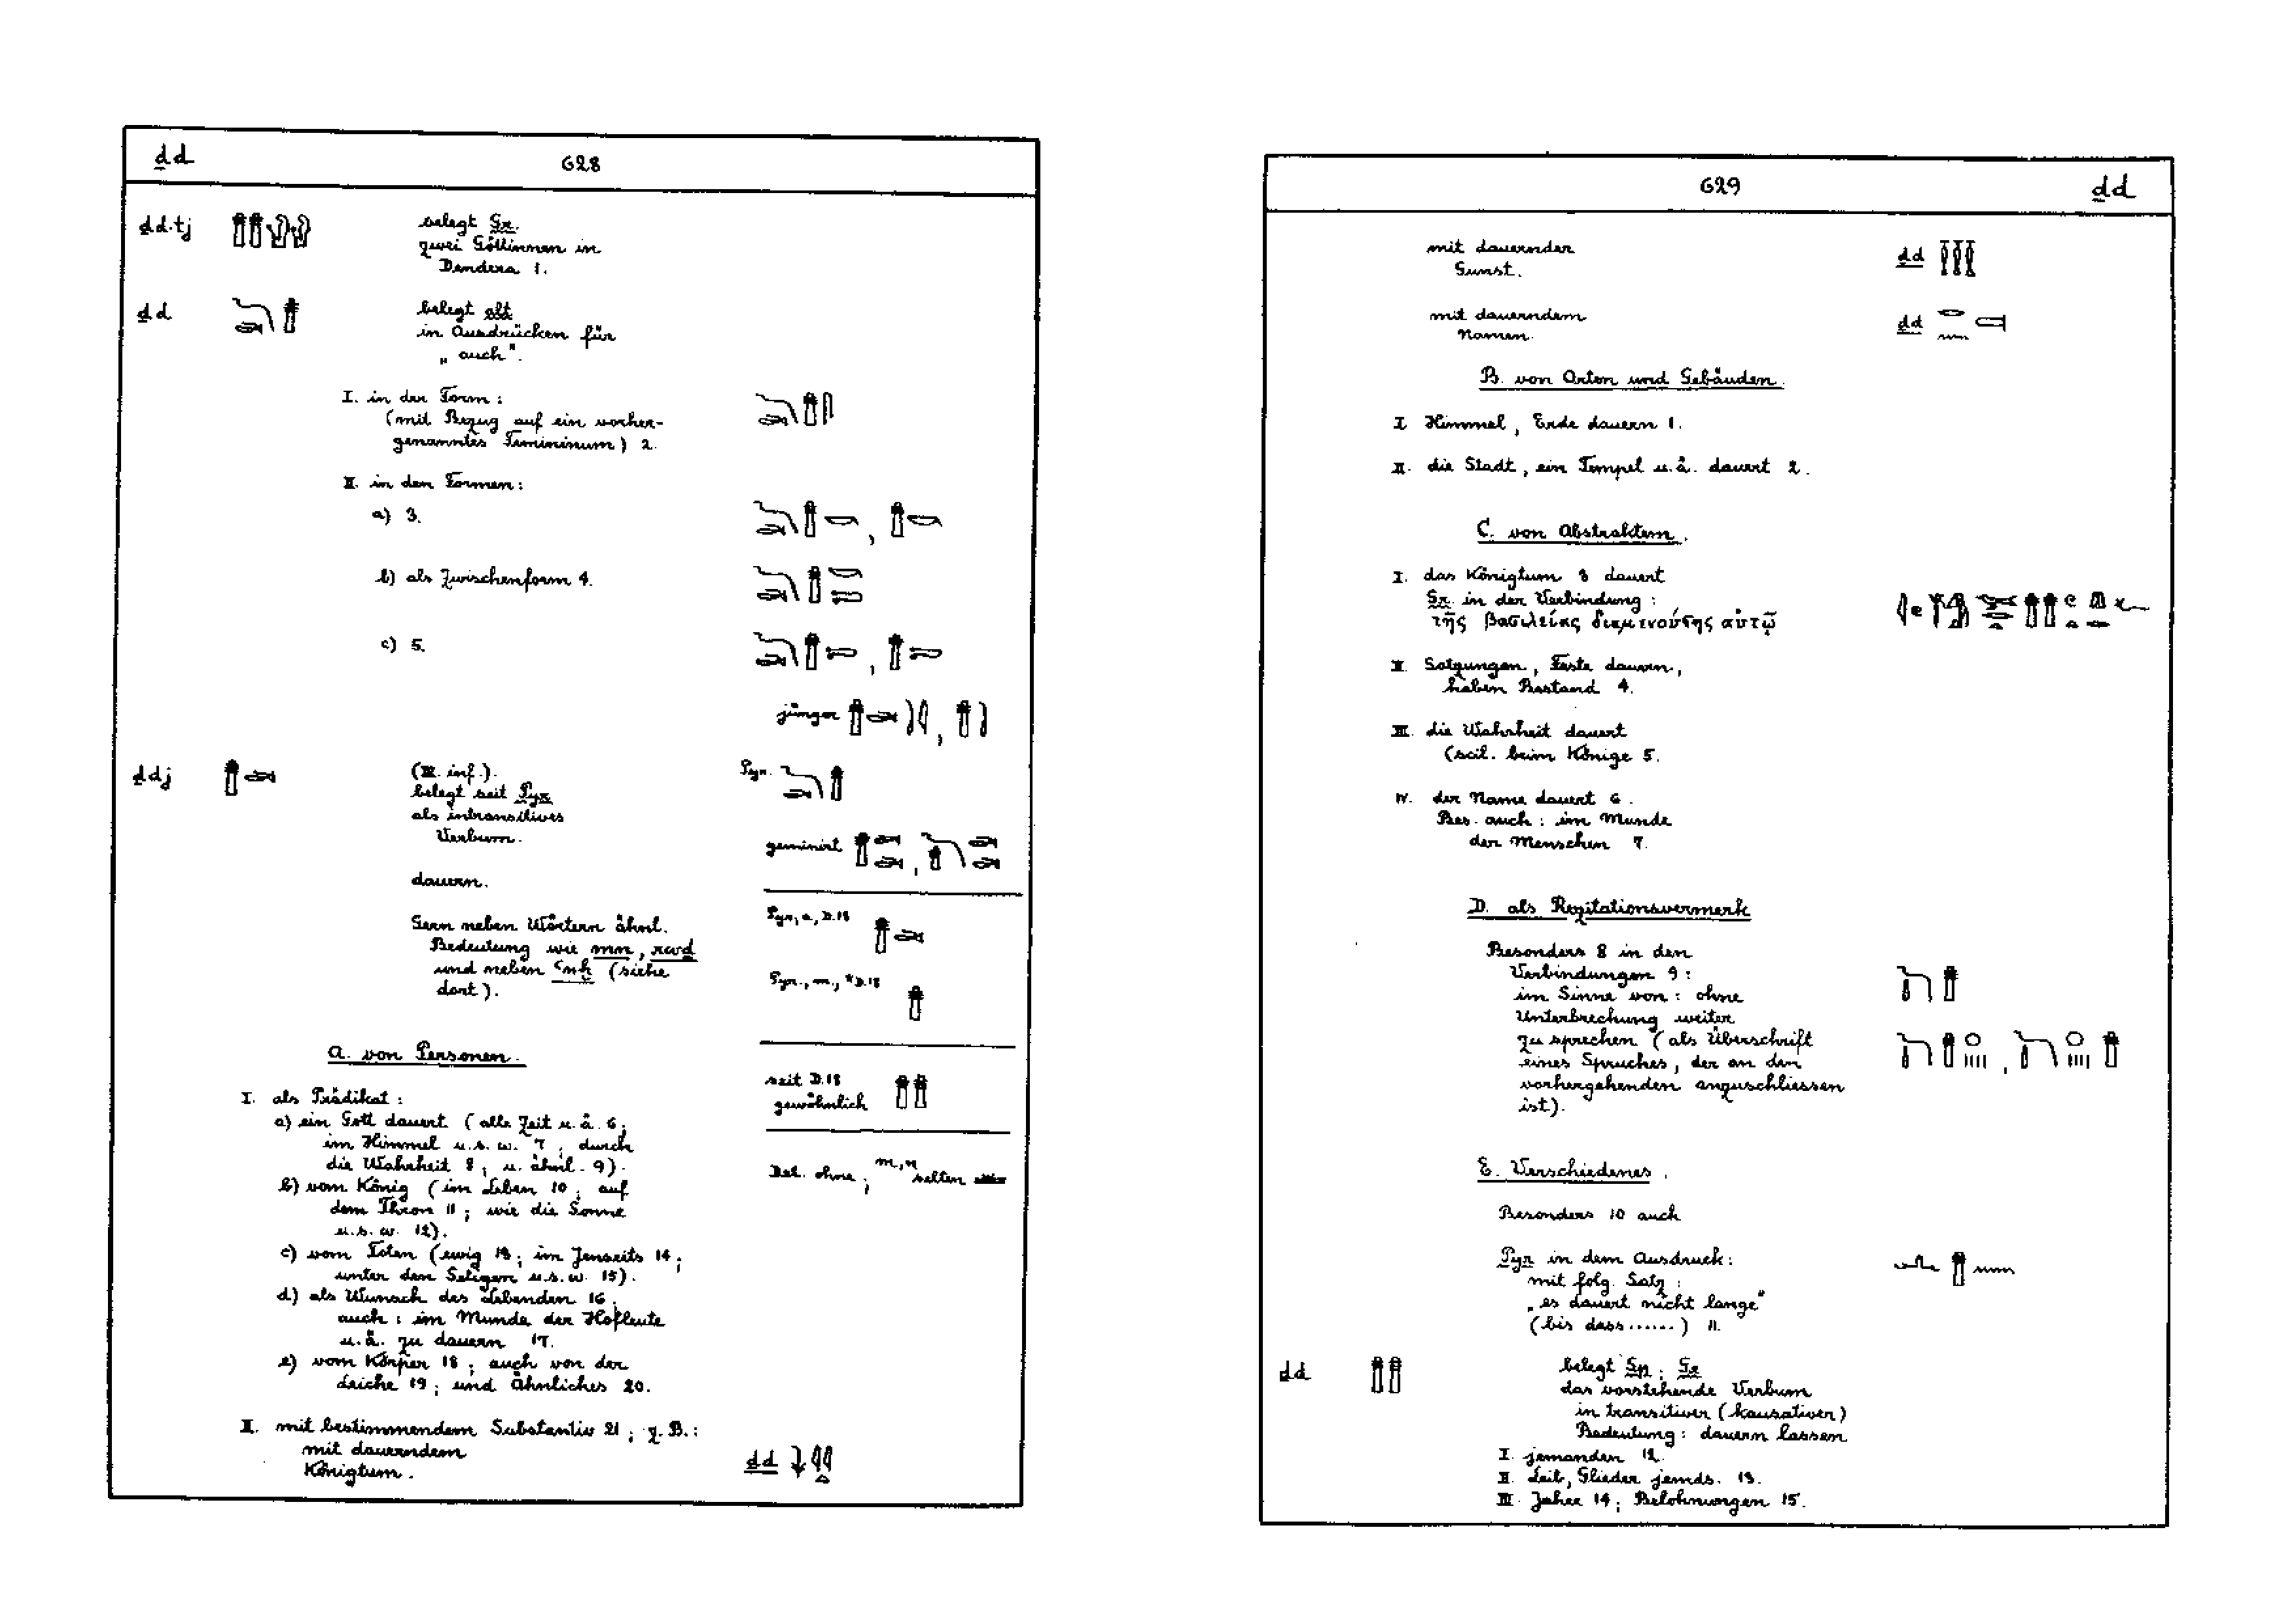 ḏd
628
ḏd.tj
belegt Gr.
zwei Göttinnen in
Dendera 1.
ḏd
belegt alt
in Ausdrücken für
„auch".
I. in der Form:
(mit Bezug auf ein vorher-
genanntes Femininum) 2.
II. in den Formen:
a) 3.
b) als Zwischenform 4.
c) 5.
jünger
ḏdj
(III. inf.).
belegt seit Pyr
als intransitives
Verbum.
Pyr.
geminirt
dauern.
Gern neben Wörtern ähnl.
Bedeutung wie mn, rwḏ
und neben ꜥnḫ (siehe
dort).
Pyr., a., D.18
Pyr., m., *D.18
seit D.18
gewöhnlich
Det. ohne; m, n selten
A. von Personen.
I. als Prädikat:
a) ein Gott dauert (alle Zeit u.ä. 6;
im Himmel u.s.w. 7; durch
die Wahrheit 8; u. ähnl. 9).
b) vom König (im Leben 10; auf
dem Thron 11; wie die Sonne
u.s.w. 12).
c) vom Toten (ewig 13; im Jenseits 14;
unter den Seligen u.s.w. 15).
d) als Wunsch des Lebenden 16.
auch: im Munde der Hofleute
u.ä. zu dauern 17.
e) vom Körper 18; auch von der
Leiche 19; und Ähnliches 20.
II. mit bestimmendem Substantiv 21; z.B.:
mit dauerndem
Königtum.
ḏd
629
ḏd
mit dauernder
Gunst.
ḏd
mit dauerndem
Namen.
ḏd
B. von Orten und Gebäuden.
I. Himmel, Erde dauern 1.
II. die Stadt, ein Tempel u.ä. dauert 2.
C. von Abstraktem.
I. das Königtum 3 dauert
Gr. in der Verbindung:
τῆς βασιλείας διαμενούσης αὐτῷ
II. Satzungen, Feste dauern,
haben Bestand 4.
III. die Wahrheit dauert
(scil. beim Könige 5.
IV. der Name dauert 6.
Bes. auch: im Munde
der Menschen 7.
D. als Rezitationsvermerk
Besonders 8 in den
Verbindungen 9:
im Sinne von: ohne
Unterbrechung weiter
zu sprechen (als Überschrift
eines Spruches, der an den
vorhergehenden anzuschliessen
ist).
E. Verschiedenes.
Besonders 10 auch
Pyr in dem Ausdruck:
mit folg. Satz:
„es dauert nicht lange"
(bis dass ......) 11.
ḏd
belegt Sp; Gr
das vorstehende Verbum
in transitiver (kausativer)
Bedeutung: dauern lassen
I. jemanden 12.
II. Leib, Glieder jemds. 13.
III. Jahre 14; Belohnungen 15.